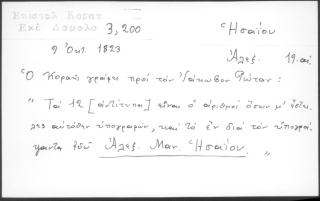 Επιστολ Κοραη
Εκδ Δαμαλα 3,200
Ἡσαΐου
9 Ὀκτ. 1823
Ἀλεξ. 19. αἰ
Ὁ Κοραῆς γράφει πρὸς τὸν Ἰάκωβον Ῥώταν:
"Τὰ 12 [ἀντίτυπα] εἶναι ὁ ἀριθμὸς ὅσων μ' ἔστει-
λες αὐτόθεν ὑπογραφῶν, καὶ τὸ ἓν διὰ τὸν ὑπογρά-
ψαντα ἐδῶ Ἀλεξ. Μαν. Ἡσαΐου. "